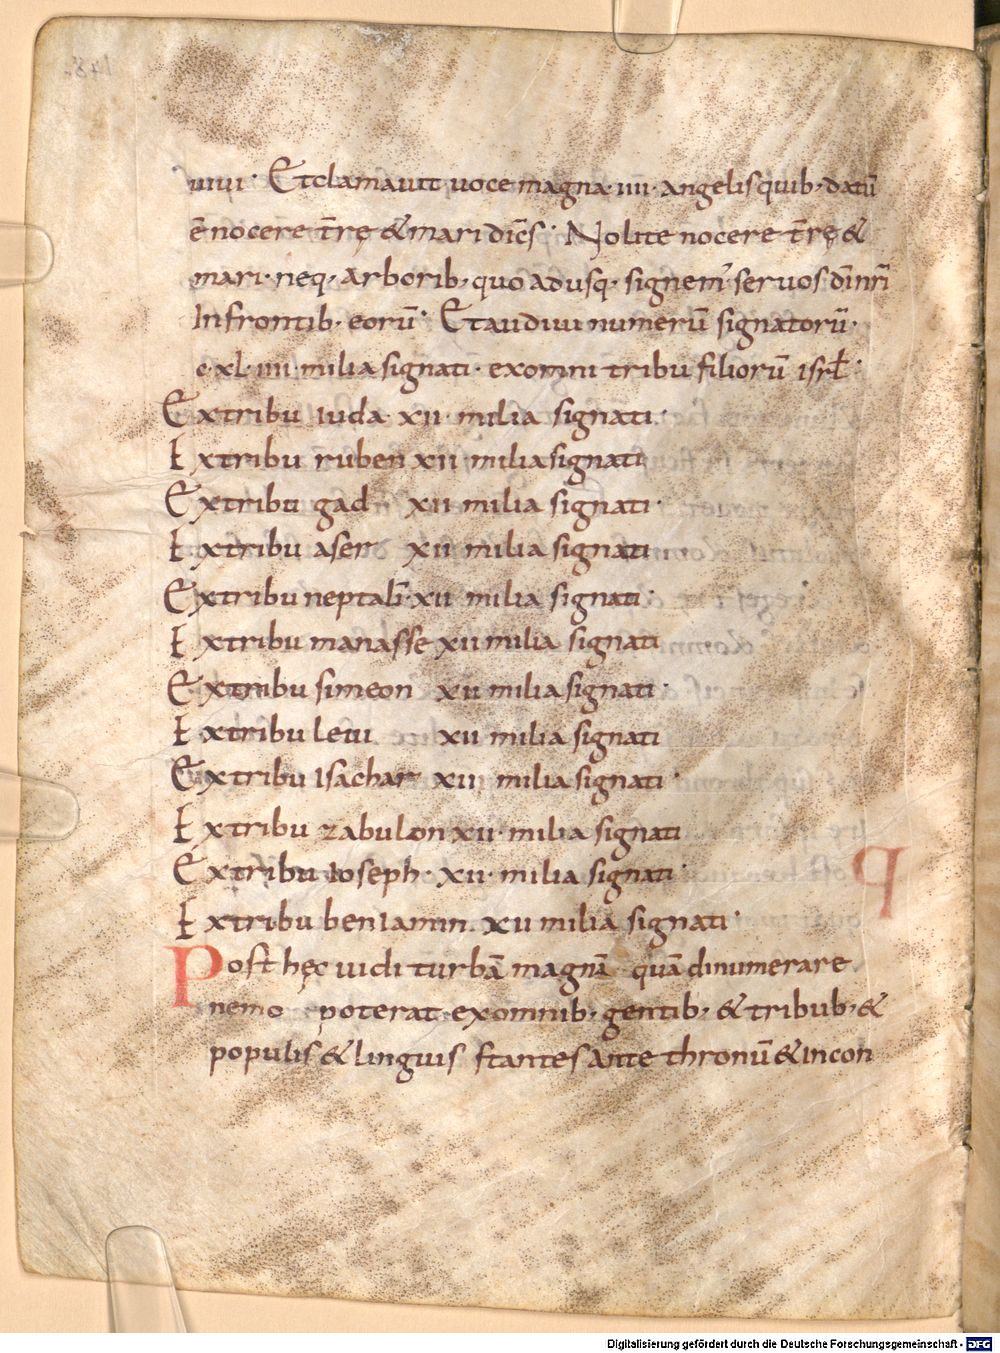 uiui· Et clamauit uoce magna· iiii· angelis quib· datū
ē nocere t̄rę & mari dic̄s· Nolite nocere t̄rę &
mari· neq· arborib· quo adusq· signem᾽ seruos dīnr̄i
In frontib· eorū· Et audiui numerū signatorū·
c·xl·iiii·milia signati· ex omni tribu filiorū isrł·
Ex tribu iuda· xii· milia signati·
Ex tribu ruben xii milia signati
Ex tribu gad xii milia signati·
Ex tribu aser xii milia signati
Ex tribu neptali·xii· milia signati·
Ex tribu manasse xii milia signati
Ex tribu simeon xii milia signati·
Ex tribu leui xii milia signati
Ex tribu Isachar xii milia signati·
Ex tribu zabulon xii· milia signati
Ex tribu Ioseph· xii· milia signati·
Ex tribu beniamin· xii milia signati·
Post hęc uidi turbā magnā quā dinumerare
nemo poterat· ex omnib· gentib· & tribub· &
populis & linguis stantes ante thronū & in con
Digitalisierung gefördert durch die Deutsche Forschungsgemeinschaft - DFG